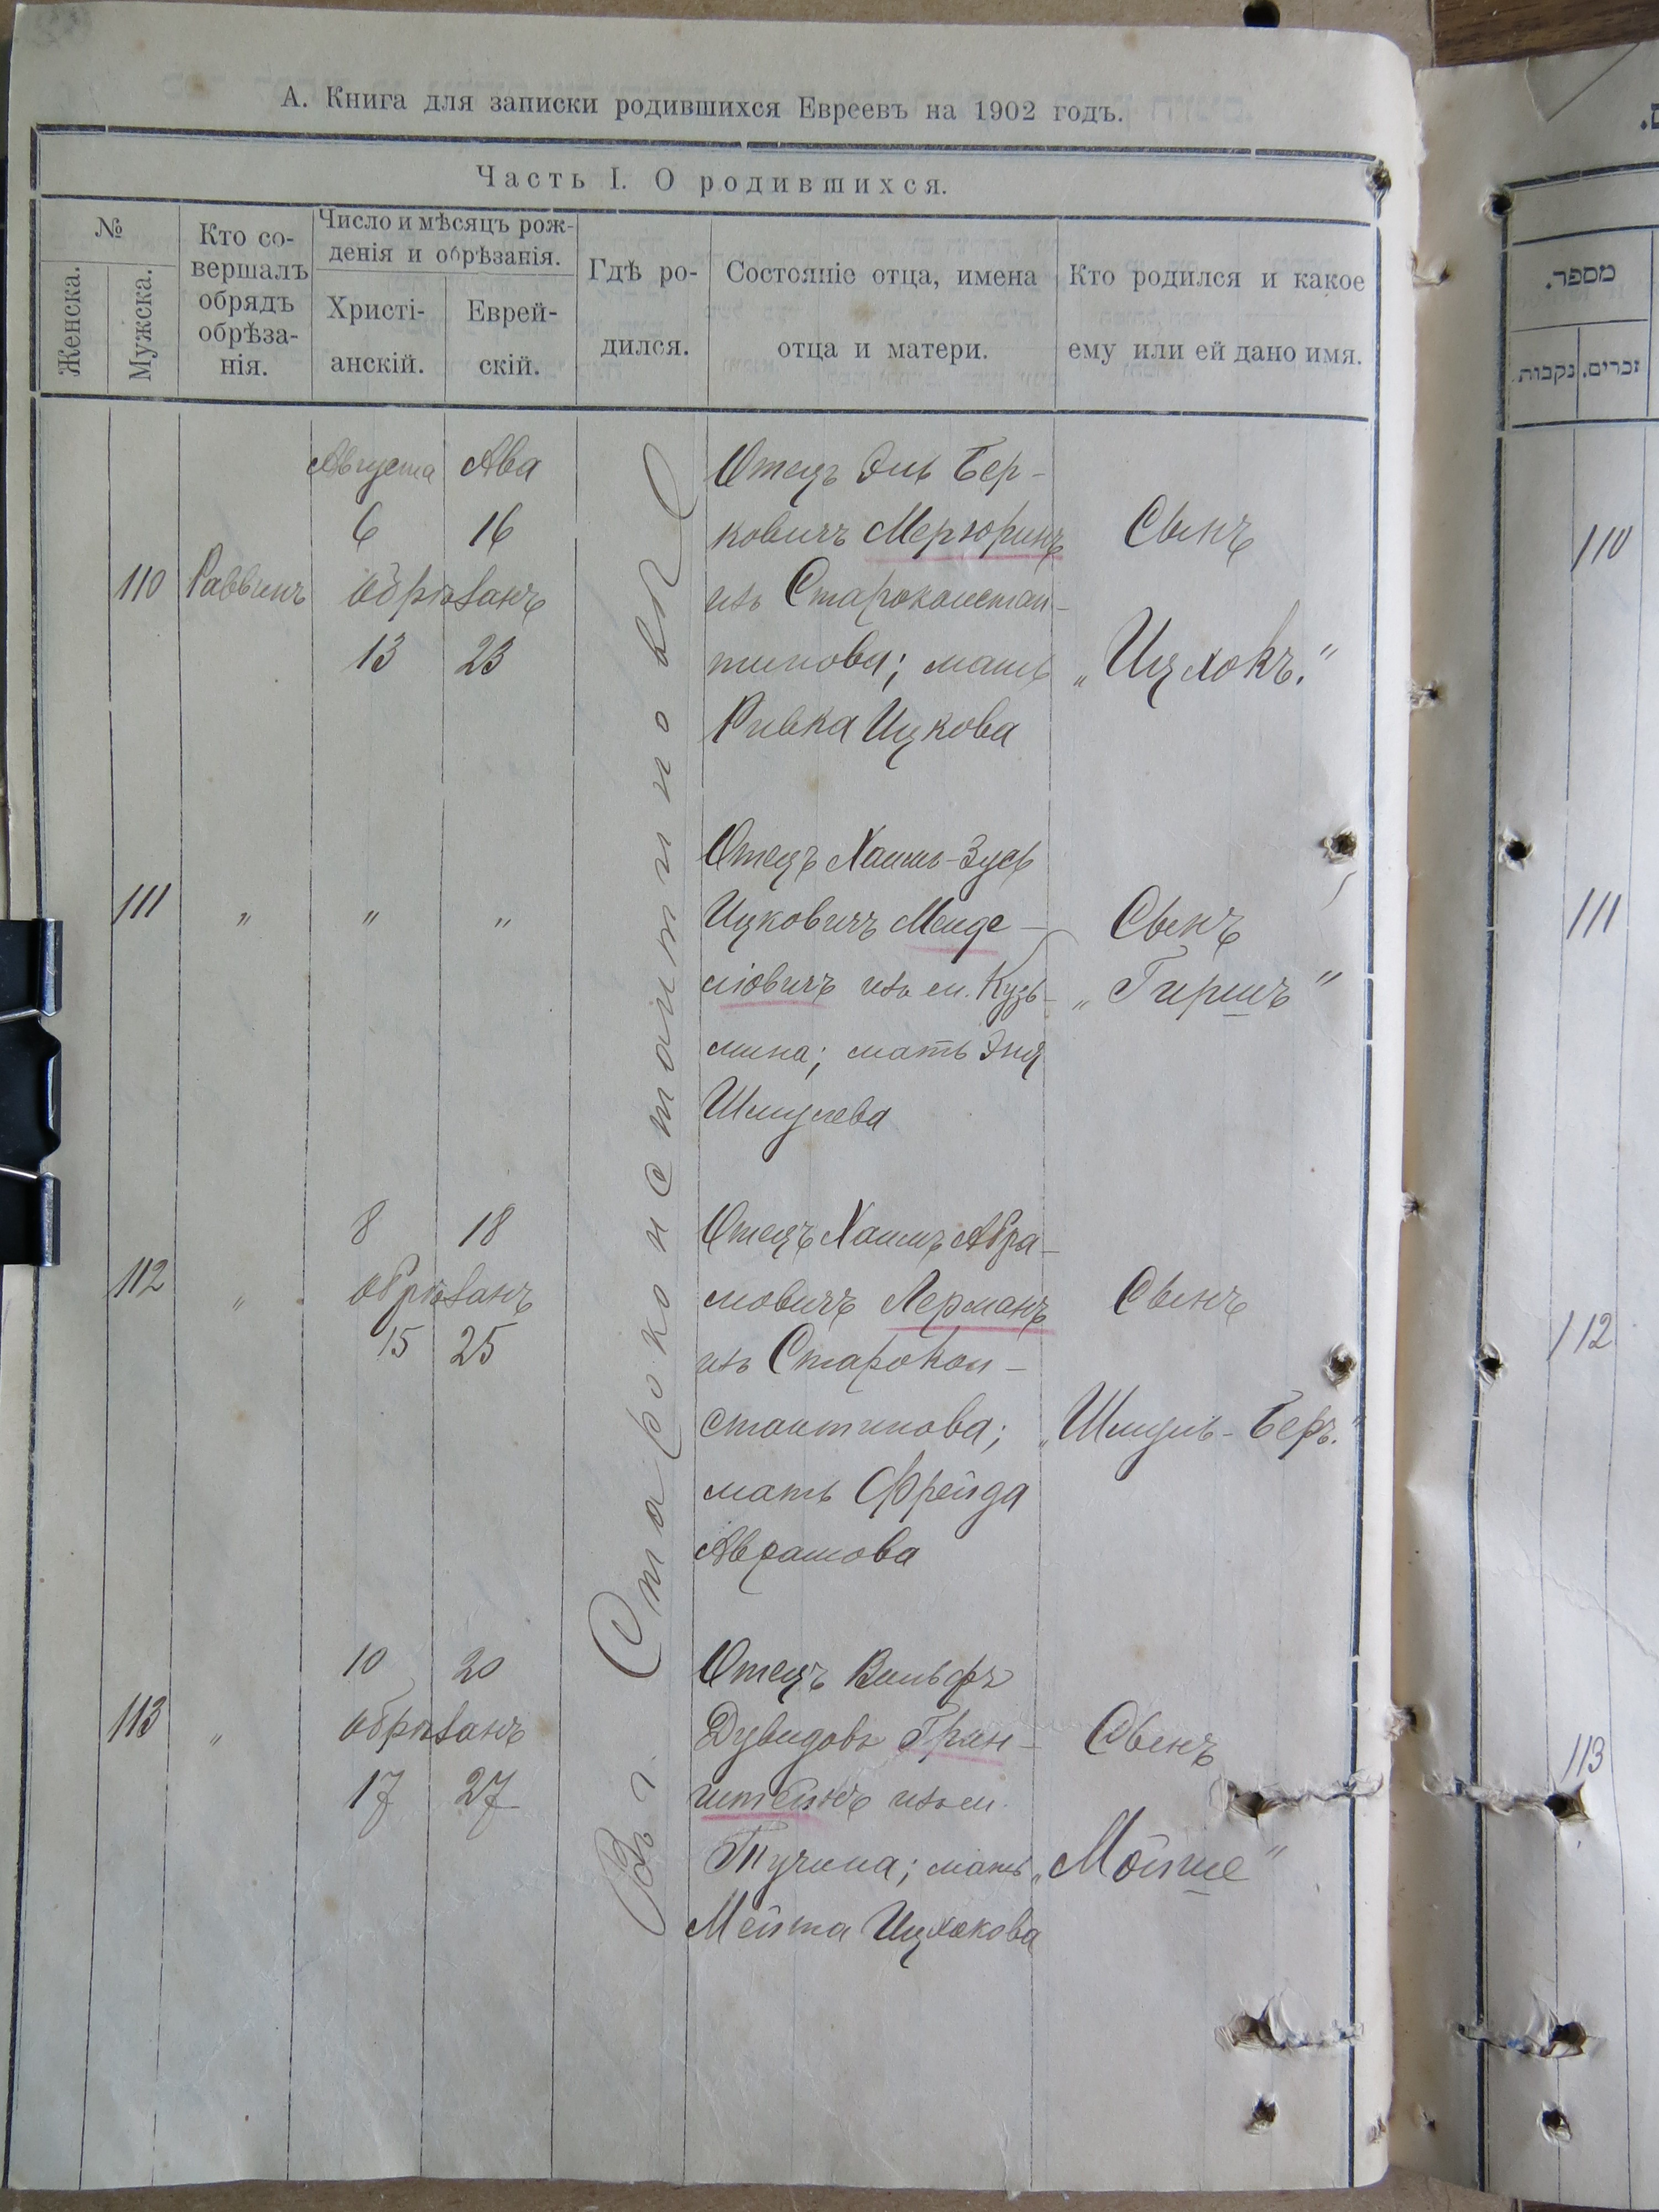 А. Книга для записки родившихся Евреевъ на 1902 годъ.
Часть I. О родившихся.
№
Женска.
Мужска.
Кто со-
вершалъ
обрядъ
обрѣза-
нія.
Число и мѣсяцъ рож-
денія и обрѣзанія.
Христі-
анскій.
Еврей-
скій.
Гдѣ ро-
дился.
Состояніе отца, имена
отца и матери.
Кто родился и какое
ему или ей дано имя.
Въ г. Староконстантиновѣ
110
Раввинъ
Августа Ава
6 16
обрѣзанъ
13 23
Отецъ Эль Бер-
ковичъ Мерхоринъ
изъ Староконстан-
тинова; мать
Ривка Ицкова
Сынъ
„Ицхокъ."
111 „ „ „
Отецъ Хаимъ-Зусь
Ицковичъ Менде-
лювичъ изъ м. Кузь-
мина; мать Эня
Шмулева
Сынъ
„Гиршъ"
112 „
8 18
обрѣзанъ
15 25
Отецъ Хаимъ Абра-
мовичъ Лерманъ
изъ Старокон-
стантинова;
мать Фрейда
Аврамова
Сынъ
„Шмуль-Беръ."
113 „
10 20
обрѣзанъ
17 27
Отецъ Вольфъ
Дувидовъ Грин-
штейнъ изъ м.
Тучина; мать
Мейта Ицхокова
Сынъ
„Мойше"
מספר.
זכרים. נקבות
110
111
112
113